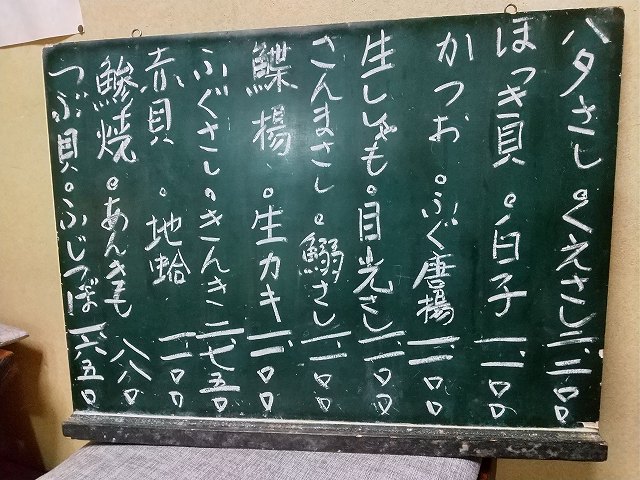 ハタさし。くえさし 一、二〇〇
ほっき貝。白子 一、一〇〇
かつお。ふぐ唐揚 一、二〇〇
生ししゃも。目光さし 一、一〇〇
さんまさし。鰯さし 一、一〇〇
鰈揚。生カキ 一、一〇〇
ふぐさし。きんき 二、七五〇
赤貝。地蛤 一、一〇〇
鯵焼。あんきも 八八〇
つぶ貝。ふじつぼ 一、六五〇